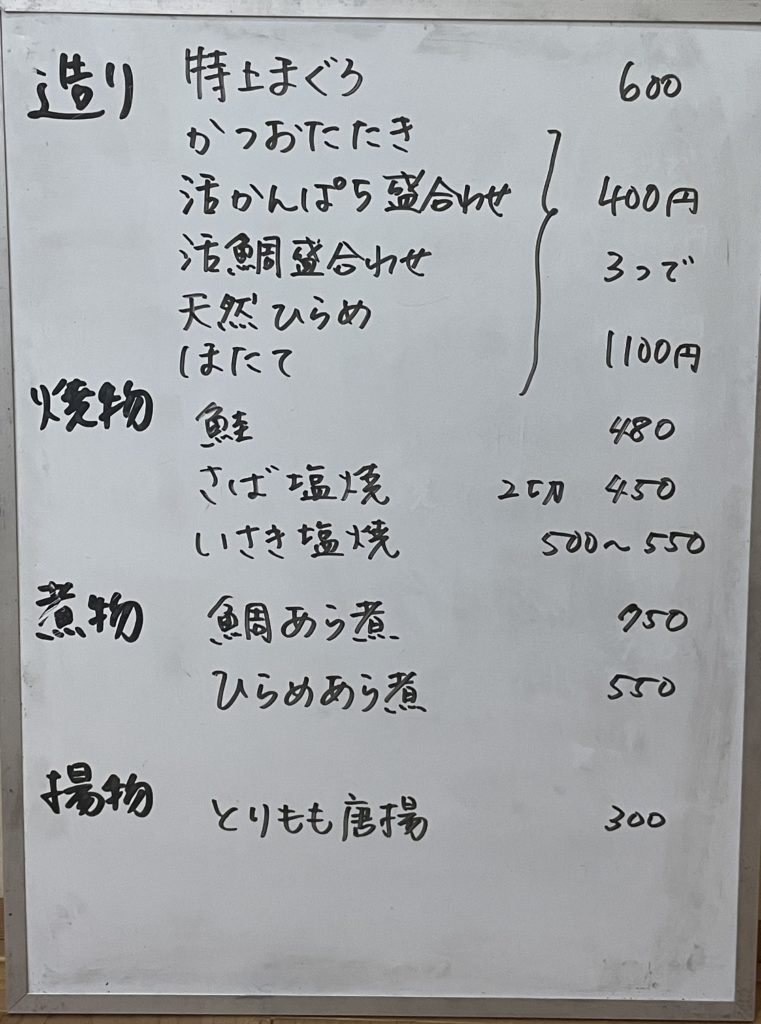 造り 特上まぐろ 600
かつおたたき
活かんぱち盛合わせ 400円
活鯛盛合わせ 3つで
天然ひらめ
ほたて 1100円
焼物 鮭 480
さば塩焼 2切 450
いさき塩焼 500〜550
煮物 鯛あら煮 750
ひらめあら煮 550
揚物 とりもも唐揚 300